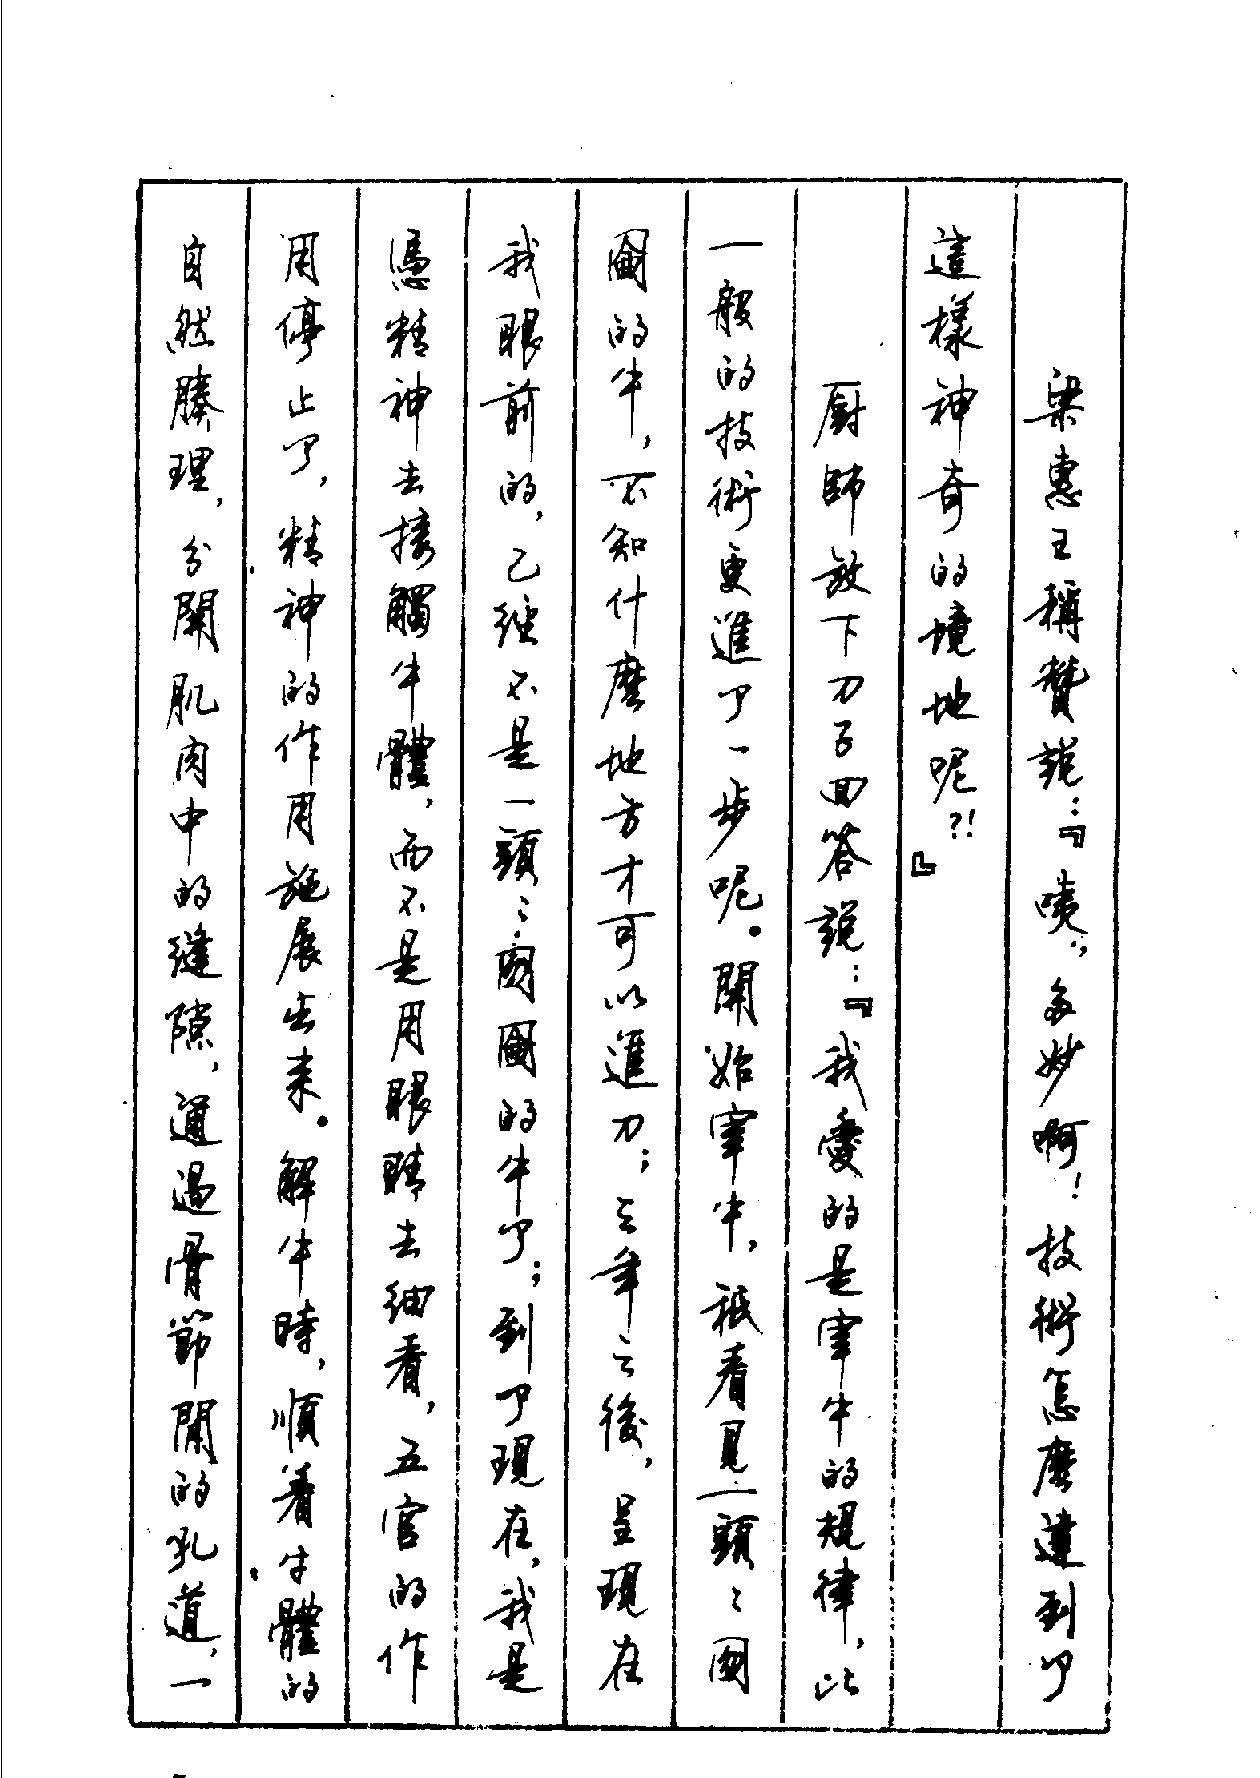 梁惠王稱贊説：『唉，多妙啊！技術怎麽達到了
這樣神奇的境地呢?!』
厨師放下刀子回答説：『我愛的是宰牛的規律，比
一般的技術更進了一步呢。開始宰牛，祇看見一頭々囫
圇的牛，不知什麽地方才可以進刀；三年之後，呈現在
我眼前的，已經不是一頭々囫圇的牛了；到了現在，我是
憑精神去接觸牛體，而不是用眼睛去細看，五官的作
用停止了，精神的作用施展出来。解牛時，順着牛體的
自然腠理，分開肌肉中的縫隙，通過骨節間的孔道，一